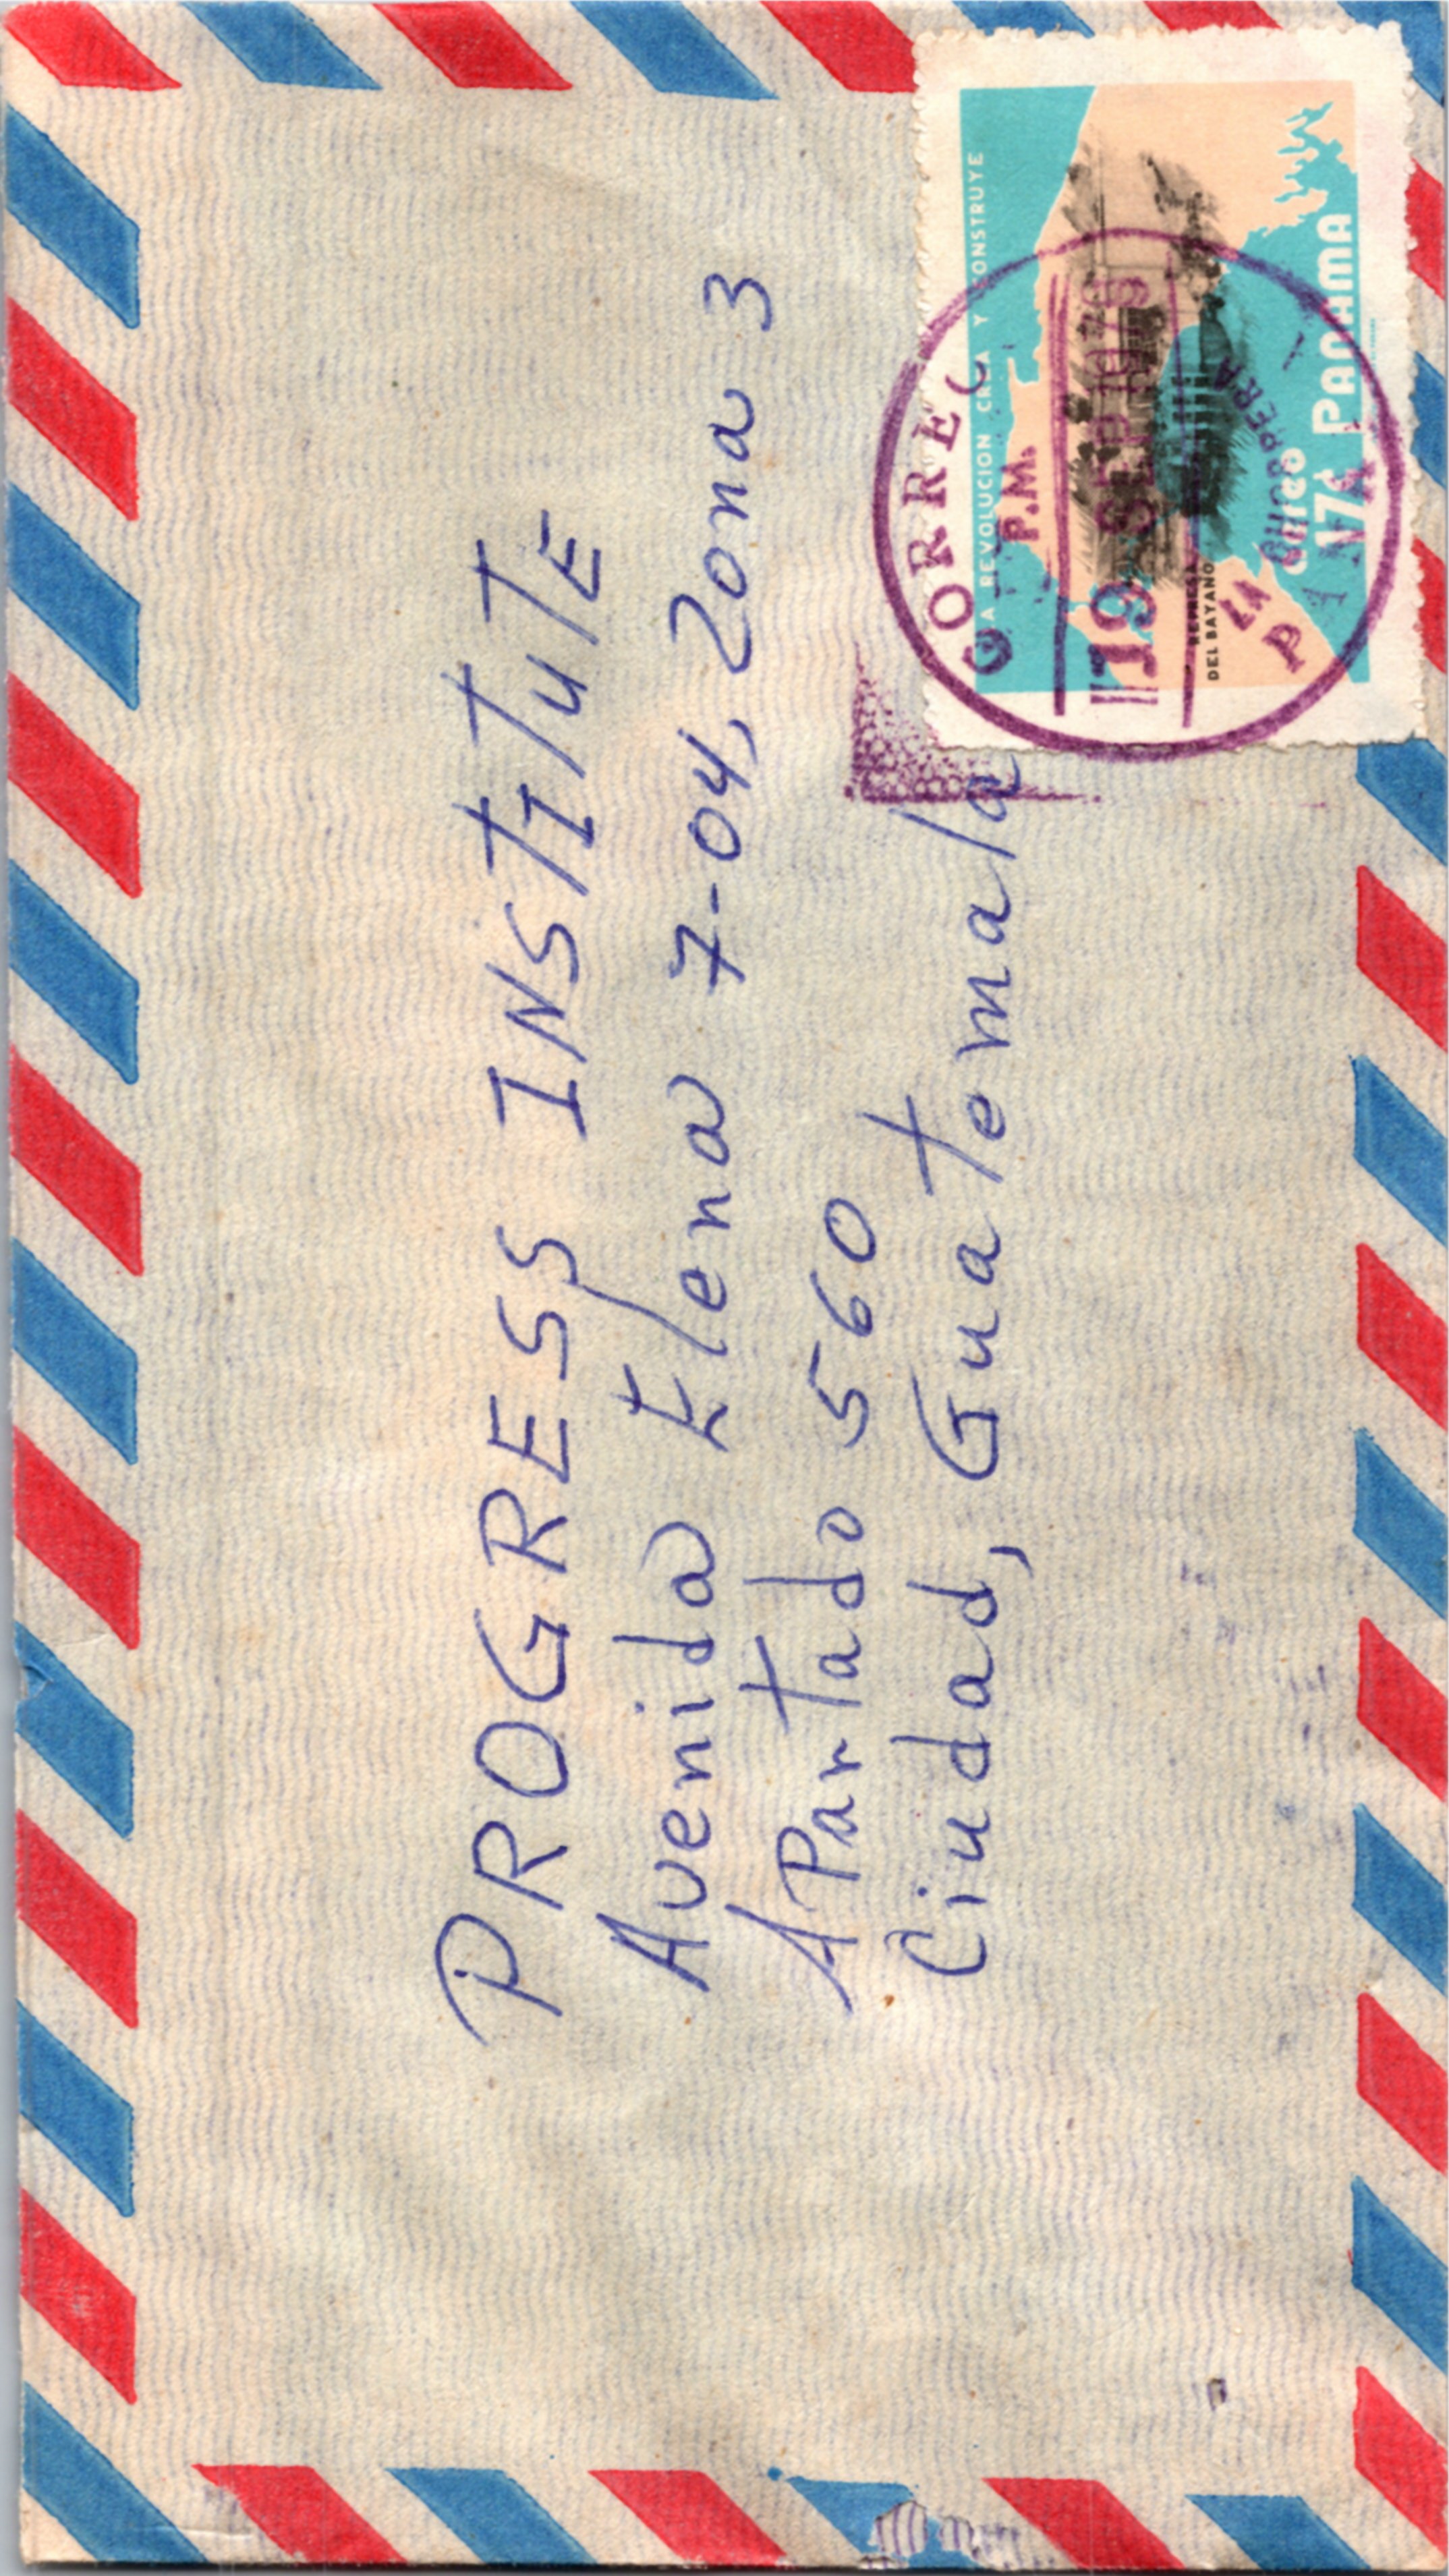 PROGRESS INSTITUTE
Avenida Elena 7-04, Zona 3
APartado 560
Ciudad, Guatemala
LA REVOLUCION CREA Y CONSTRUYE
REPRESA
DEL BAYANO
aereo
17¢ PANAMA
CORREO
P.M.
19 SEP 1979
LA CHORRERA
PANAMA